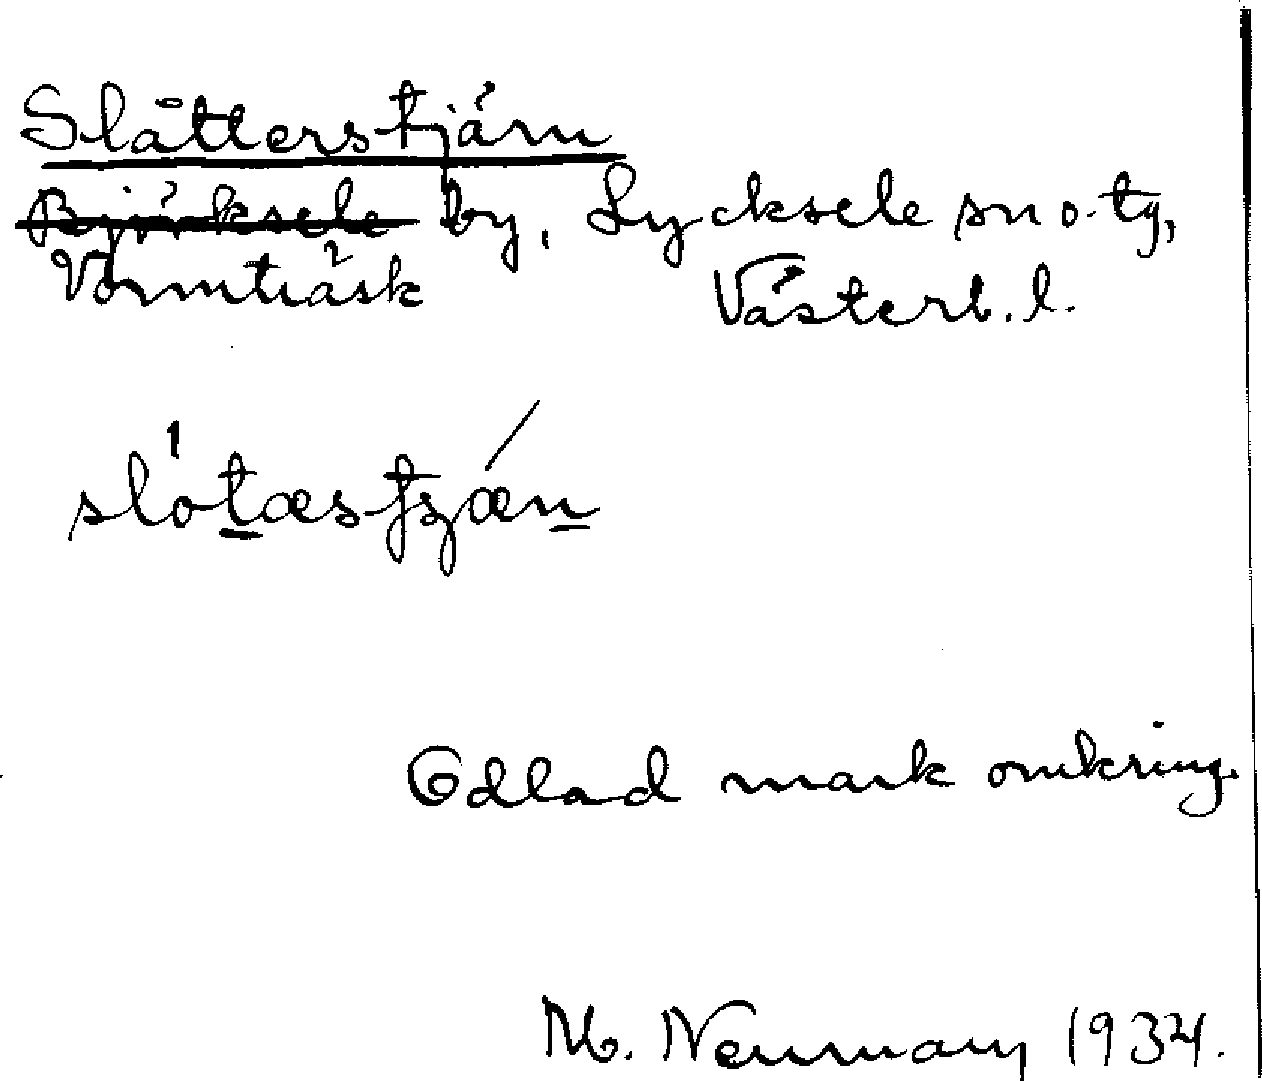 Slåtterstjärn
Björksele by, Lycksele sn o. tg,
Vormträsk Västerb. l.
slòtæstjæ̂n
Odlad mark omkring.
M. Neuman, 1934.